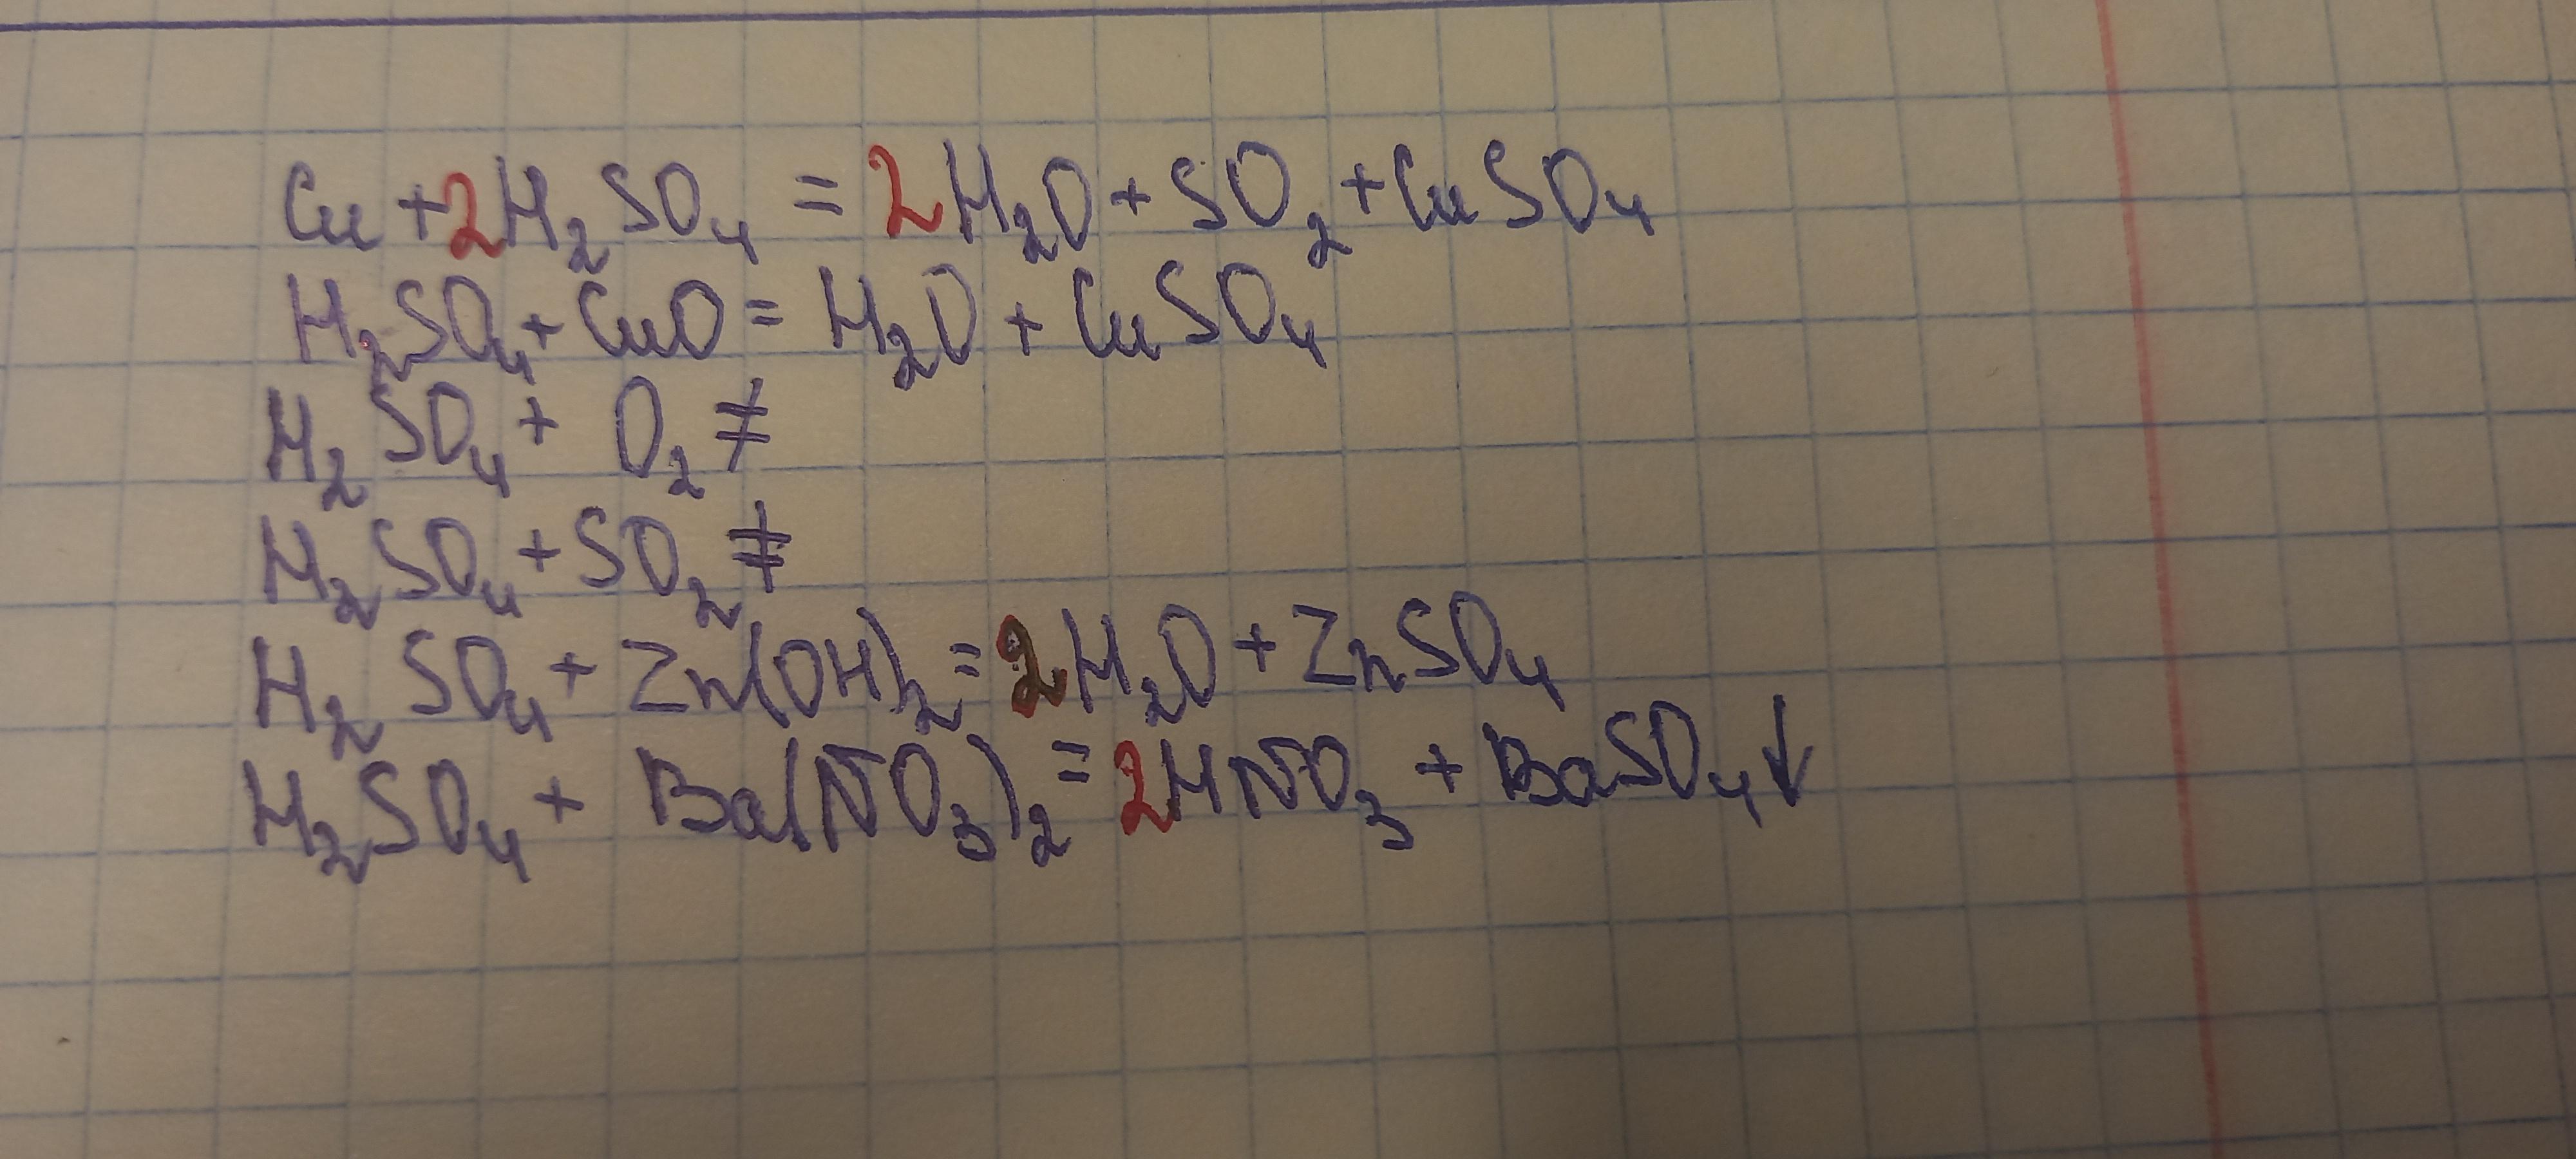 Cu + 2H₂SO₄ = 2H₂O + SO₂ + CuSO₄
H₂SO₄ + CuO = H₂O + CuSO₄
H₂SO₄ + O₂ ≠
H₂SO₄ + SO₂ ≠
H₂SO₄ + Zn(OH)₂ = 2H₂O + ZnSO₄
H₂SO₄ + Ba(NO₃)₂ = 2HNO₃ + BaSO₄↓